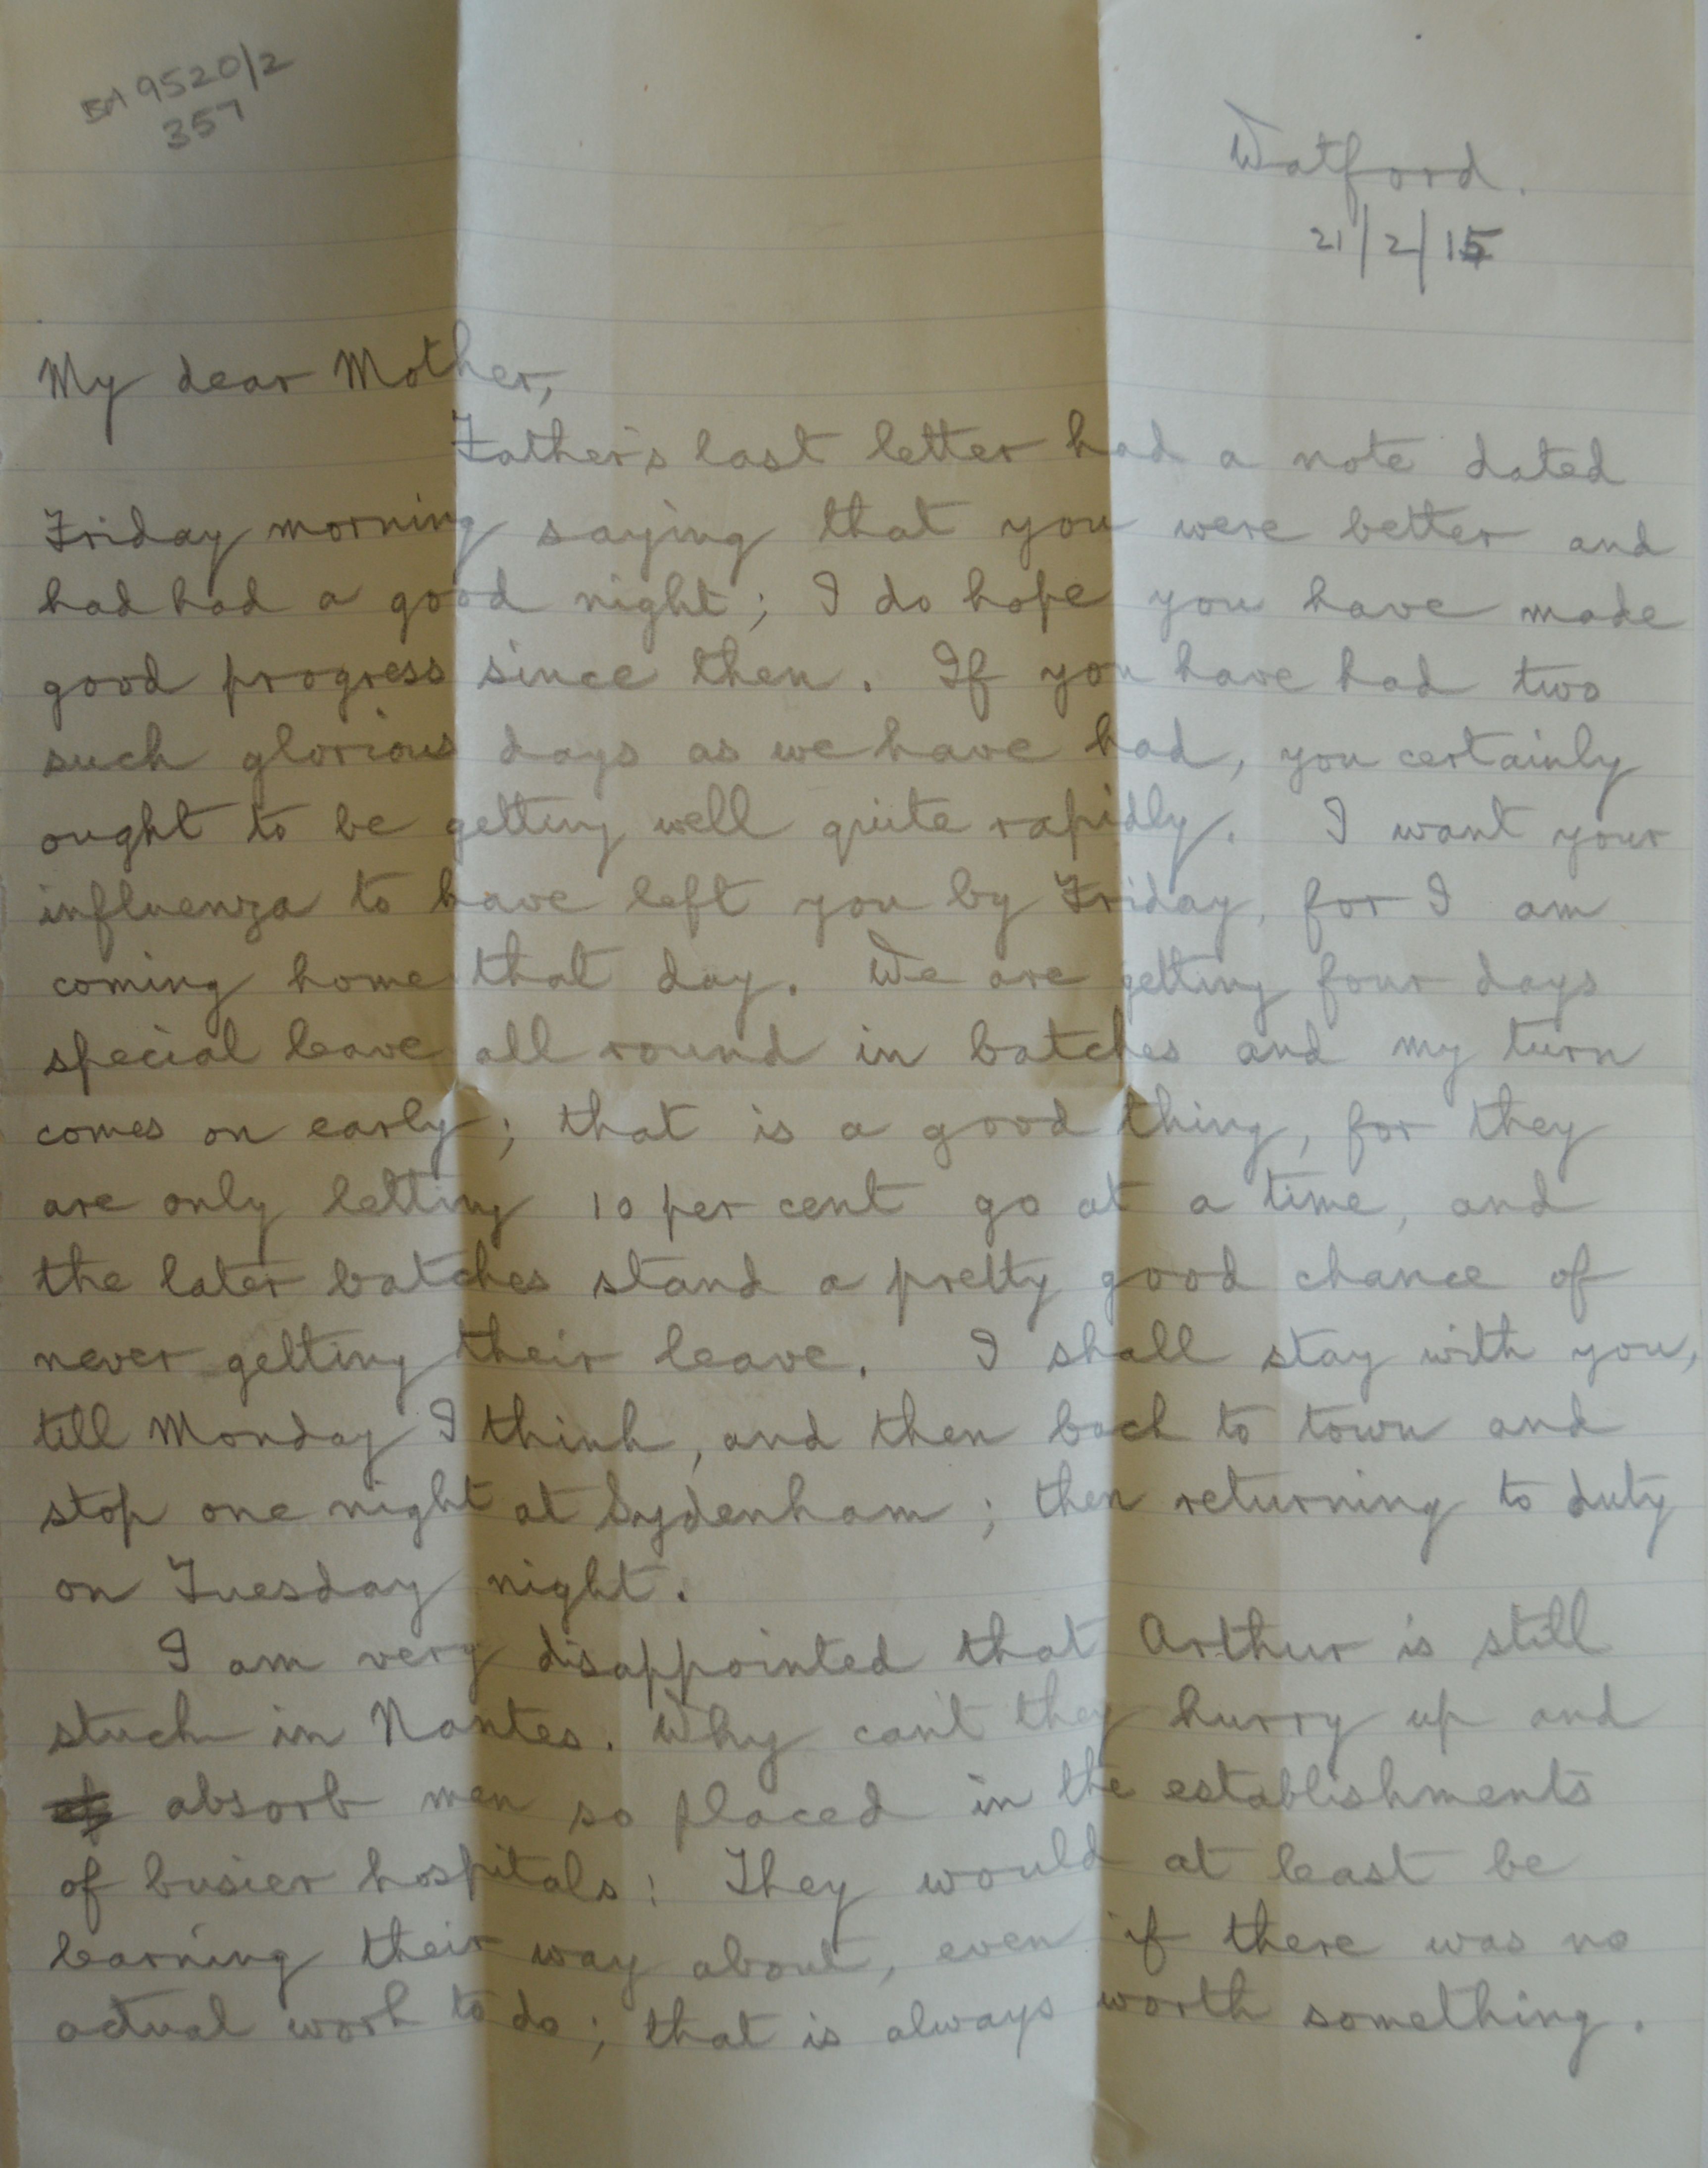 BA 9520/2
357
Watford.
21/2/15
My dear Mother,
Father's last letter had a note dated
Friday morning saying that you were better and
had had a good night; I do hope you have made
good progress since then. If you have had two
such glorious days as we have had, you certainly
ought to be getting well quite rapidly. I want your
influenza to have left you by Friday, for I am
coming home that day. We are getting four days
special leave all round in batches and my turn
comes on early; that is a good thing, for they
are only letting 10 per cent go at a time, and
the later batches stand a pretty good chance of
never getting their leave. I shall stay with you,
till Monday I think, and then back to town and
stop one night at Sydenham; then returning to duty
on Tuesday night.
I am very disappointed that Arthur is still
stuck in Nantes. Why can't they hurry up and
absorb men so placed in the establishments
of busier hospitals! They would at least be
learning their way about, even if there was no
actual work to do; that is always worth something.